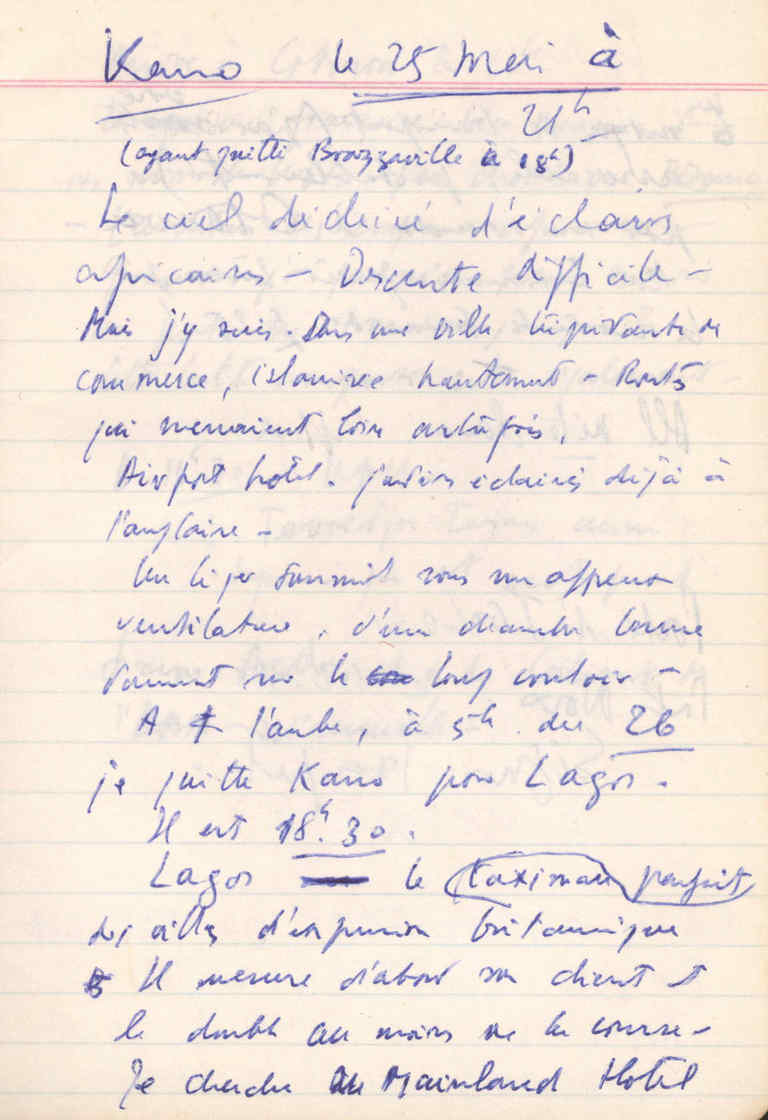 Kano le 25 mai à
21h
(ayant quitté Brazzaville à 18h)
Le ciel déchiré d'éclairs
africains – Descente difficile –
Mais j'y suis. Dans une ville trépidante de
commerce, islamisée hautement – Routes
qui menaient loin autrefois.
Airport hôtel. jardins éclairés déjà à
l'anglaise –
Un léger sous un affreux
ventilateur, d'une chambre borne
donnant sur le long couloir –
A l'aube, à 5h. du 26
je quitte Kano pour Lagos.
Il est 18h.30.
Lagos le taximan parfait
des villes d'expression britannique
Il mesure d'abord son client et
le double au moins de la course –
Je cherche Mainland Hotel